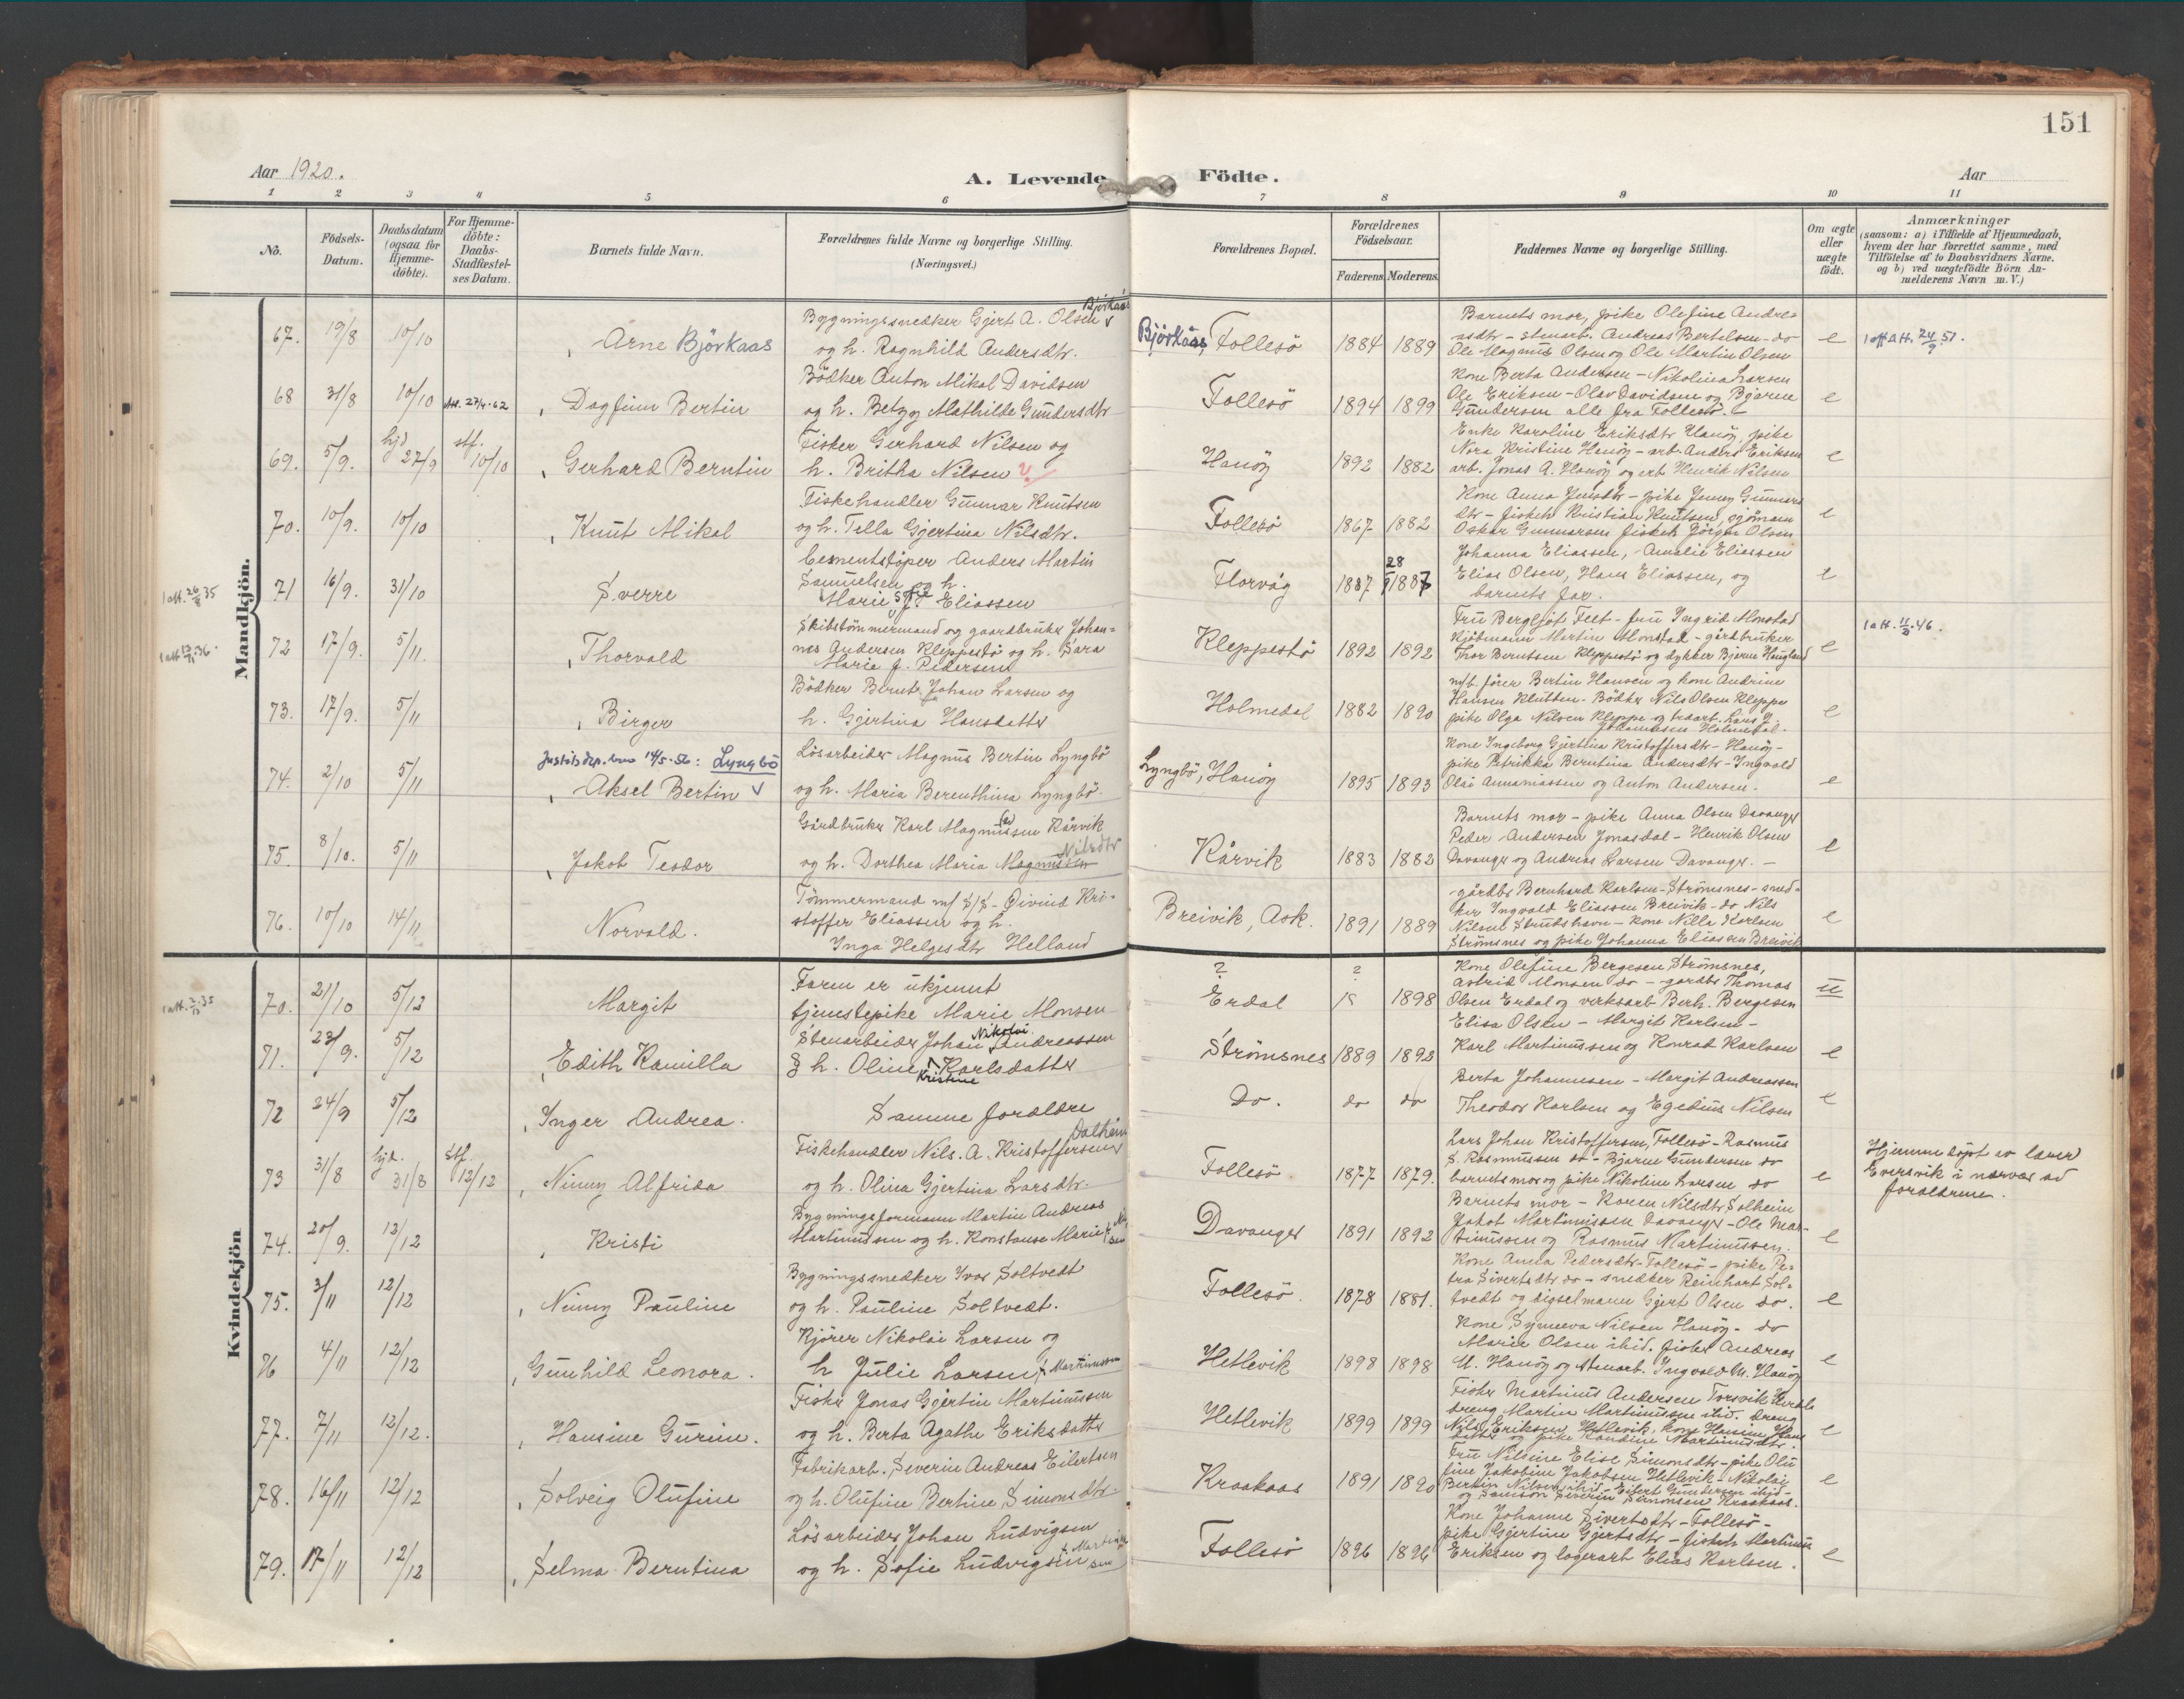 151
Aar 1920.
A. Levende Födte.
Aar
1 2 3 4 5 6 7 8 9 10 11
No.
Födsels-Datum.
Daabsdatum (ogsaa for Hjemme-döbte).
For Hjemme-döbte: Daabs-Stadfæstel-ses Datum.
Barnets fulde Navn.
Forældrenes fulde Navne og borgerlige Stilling.
(Næringsvei.)
Forældrenes Bopæl.
Forældrenes Födselsaar.
Faderens. Moderens.
Faddernes Navne og borgerlige Stilling.
Om ægte eller uægte födt.
Anmærkninger
(saasom: a) i Tilfælde af Hjemmedaab, hvem der har forrettet samme, med Tilföielse af to Daabsvidners Navne. og b) ved uægtefödte Börn An-melderens Navn m. V.)
Mandkjön.
67. 19/8 10/10 Arne Björkaas
Bygningssnedker Gjert A. Olsen Björkaas
og h. Ragnhild Andersdtr.
Björkaas, Follesö 1884 1889
Barnets mor, pike Olefine Andre-
asdtr - stenarb. Andreas Bertelsen do
Ole Magnus Olsen og Ole Martin Olsen
e
1 att. 24/9 51.
68 31/8 10/10 Att. 27/4-62 Dagfinn Bertin
Bödker Anton Mikal Davidsen
og h. Betzy Mathilde Gundersdtr
Follesö 1894 1899
Kone Berta Andersen - Nikolina Larsen
Ole Eriksen - Olav Davidsen og Bjarne
Gundersen alle fra Follesö.
e
69. 5/9. hjd 27/9 stf. 10/10 Gerhard Berntin
Fisker Gerhard Nilsen og
h. Britha Nilsen
Hanöy 1892 1882
Enke Karoline Eriksdtr Hanöy, pike
Nora Kristine Hanöy - arb. Anders Eriksen
arb. Jonas A. Hanöy og arb Henrik Nilsen
e
70. 10/9. 10/10 Knut Mikal
Fiskehandler Gunnar Knutsen
og h. Tella Gjertina Nilsdtr.
Follesö 1867 1882
Kone Anna Jensdtr - pike Jenny Gunnars
dtr - fisker Kristian Knutsen, sjömann
Oskar Gunnarsen fisker Jörgen Olsen
e
1 att. 26/8 35
71 16/9. 31/10 Sverre
Cementstöper Anders Martin
Samuelsen og h.
Marie Sofie Eliassen
Florvåg 1887 28 1887
Johanna Eliassen, - Amalie Eliassen
Elias Olsen, Hans Eliassen, og
barnets far.
e
72 17/9. 5/11. Thorvald
Skibstömmermand og gaardbruker Johan-
nes Andersen Kleppestö og h. Sara
Maria J. Pedersen
Kleppestö 1892 1892
Fru Bergljot Feet - fru Ingrid Monstad
Kjöbmann Martin Monstad - gårdbruker
Thor Berntsen Kleppestö og dykker Bjarne Haugland
e
73. 17/9. 5/11 Birger
Bödker Bernt Johan Larsen og
h. Gjertina Hansdatter
Holmedal 1882 1890
m/b. förer Bertin Hansen og kone Andrine
Hansen Klubben - Bödker Nils Olsen Kleppe
pike Olga Nilsen Kleppe og
Johannesen Holmedal.
e
74. 2/10 5/11
Justitsdep. brev 14/5-56: Lyngbö
Aksel Bertin
Lösarbeider Magnus Bertin Lyngbö
og h. Maria Berenthina Lyngbö.
Lyngbö, Hanöy 1895 1893
Kone Ingeborg Gjertina Kristoffersdtr - Hanöy -
pike Petrikka Berntina Andersdtr - Ingvald
Olai Annaniassen og Anton Andersen.
e
75. 8/10. 5/11 Jakob Teodor
Gårdbruker Karl Magnussen Kårvik
og h. Dorthea Maria Magnussen Nilsdtr
Kårvik 1883 1882
Barnets mor - pike Anna Olsen Davanger
Peder Andersen Jonasdal - Henrik Olsen
Davanger og Andreas Larsen Davanger. -
e
76. 10/10 14/11 Norvald.
Tömmermand m/ S/S - Øivind Kri-
stoffer Eliassen og h.
Inga Helgesdtr Helland
Breivik, Ask. 1891 1889
gårdbr Bernhard Karlsen - Strömsnes - sned-
ker Ingvald Eliassen Breivik - do Nils
Nilsen Strudshavn - kone Nilla Karlsen
Strömsnes og pike Johanna Eliassen Breivik
e
Kvindekjön
70. 21/10 5/12 Margit
Faren er ukjennt
tjenestepike Marie Monsen
?
Erdal ? 1898
Kone Olefine Bergesen Strömsnes,
Astrid Monsen do - gardbr Thomas
Olsen Erdal og verksarb Berh. Bergesen
u
71. 23/9. 5/12 Edith Kamilla
Stenarbeider Johan Nikolai Andreassen
& h. Oline Kristine Karlsdatter
Strömsnes 1889 1892
Elisa Olsen - Margit Karlsen -
Karl Martinussen og Konrad Karlsen
e
72 24/9 5/12 Inger Andrea.
Samme foreldre
Do. do do
Berta Johannesen - Margit Andreassen
Theodor Karlsen og Egedius Nilsen
e
73 31/8 hjd. 31/8 Stf. 12/12 Ninny Alfrida
Fiskehandler Nils. A. Kristoffersen
og h. Olina Gjertina Larsdtr.
Follesö 1877 1879.
Lars Johan Kristoffersen, Follesö - Rasmus
S. Rasmussen do - Bjarne Gundersen do
barnets mor og pike Nikoline Larsen do
e
Hjemmedöpt av lærer
Eversvik i nærvær ad
foreldrene.
74. 20/9. 12/12 Kristi
Bygningsformann Martin Andreas
Martinussen og h. Konstanse Marie
Davanger 1891 1892
Barnets mor - Karen Nilsdtr, Solheim
Jakob Martinussen Davanger - Ole Mar-
tinussen og Rasmus Martinussen.
e
75. 3/11 12/12 Ninny Pauline
Bygningssnedker Ivar Soltvedt
og h. Pauline Soltvedt.
Follesö. 1878 1881.
Kone Anna Pedersdtr - Follesö - pike Pe-
tra Sivertsdtr do - snedker Reinhart Sol-
tvedt og digselmann Gjert Olsen do.
e
76 4/11 12/12 Gunhild Leonora.
Kjörer Nikolai Larsen og
h Julie Larsen f. Martinussen
Hetlevik 1898 1898
Kone Synneva Nilsen Hanöy - do
Marie Olsen ibid. fisker Andreas
M. Hanöy og stenarb. Ingvald M. Hanöy
e
77. 7/11 12/12. Hansine Gurine.
Fisker Jonas Gjertin Martinussen
og h. Berta Agathe Eriksdatter
Hetlevik 1899 1899
Fisker Martinus Andersen Torsvik
dreng Martin Martinussen ibid. dreng
Nils Eriksen Hetlevik, kone Hansine Hans
datter og pike Martinusdtr.
e
78. 16/11 12/12 Solveig Olufine
Fabrikarb. Severin Andreas Eilertsen
og h. Olufine Bertine Simonsdtr.
Kraakaas 1891 1890
Fru Nilsine Elise Simonsdtr - pike Olu
fine Jakobine Jakobsen Hetlevik - Nikolai
Bertin Nilsen ibid - Eilert Gundersen ibid -
og Samson Severin Simonsen Kraakaas.
e
79. 17/11 12/12 Selma Berntina
Lösarbeider Johan Ludvigsen
og h. Sofie Ludvigsen
Follesö 1896 1896
Kone Johanne Sivertsdtr - Follesö -
pike Gjertine Gjertsdtr - fisker Martinus
Eriksen og lagerarb Elias Karlsen.
e